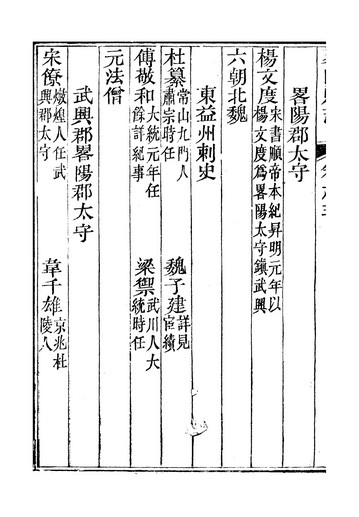 畧陽郡太守
楊文度宋書順帝本紀昇明元年以楊文度爲畧陽太守鎮武興
六朝北魏
東益州刺史
杜纂常山九門人肅宗時任 魏子建詳見宦績
傅敬和大統元年任餘詳紀事 梁禦武川人大統時任
元法僧
武興郡畧陽郡太守
宋僚燉煌人任武興郡太守 韋千雄京兆杜陵人